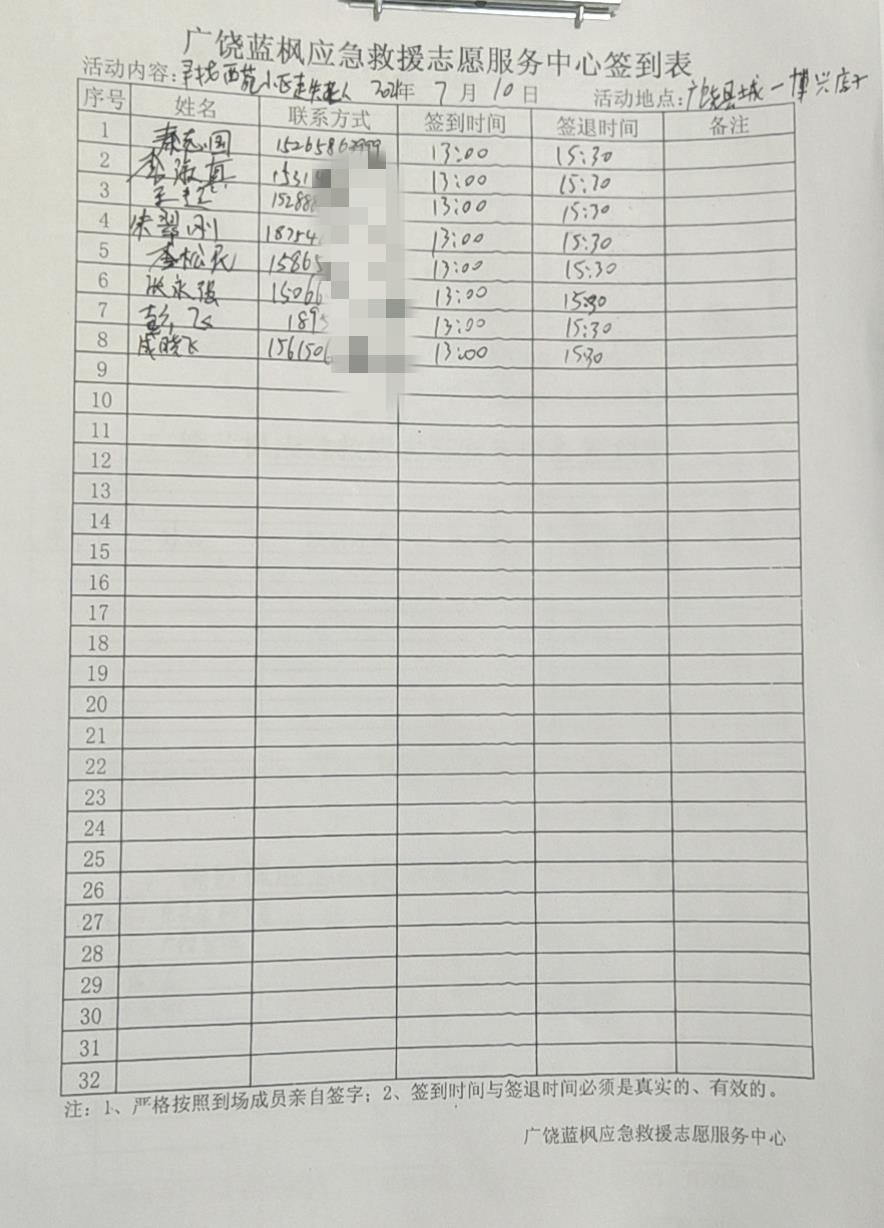 广饶蓝枫应急救援志愿服务中心签到表
活动内容:寻找西苑小区走失老人 2024年 7 月 10 日 活动地点:广饶县城一博兴店子
序号 姓名 联系方式 签到时间 签退时间 备注
1 秦志国 15265862999 13:00 15:30
2 李淑真 1531 13:00 15:30
3 王 15288 13:00 15:30
4 朱翠刚 18754 13:00 15:30
5 李松民 15865 13:00 15:30
6 张永强 15066 13:00 15:30
7 彭飞 1895 13:00 15:30
8 成晓飞 156150 13:00 15:30
9
10
11
12
13
14
15
16
17
18
19
20
21
22
23
24
25
26
27
28
29
30
31
32
注:1、严格按照到场成员亲自签字;2、签到时间与签退时间必须是真实的、有效的。
广饶蓝枫应急救援志愿服务中心